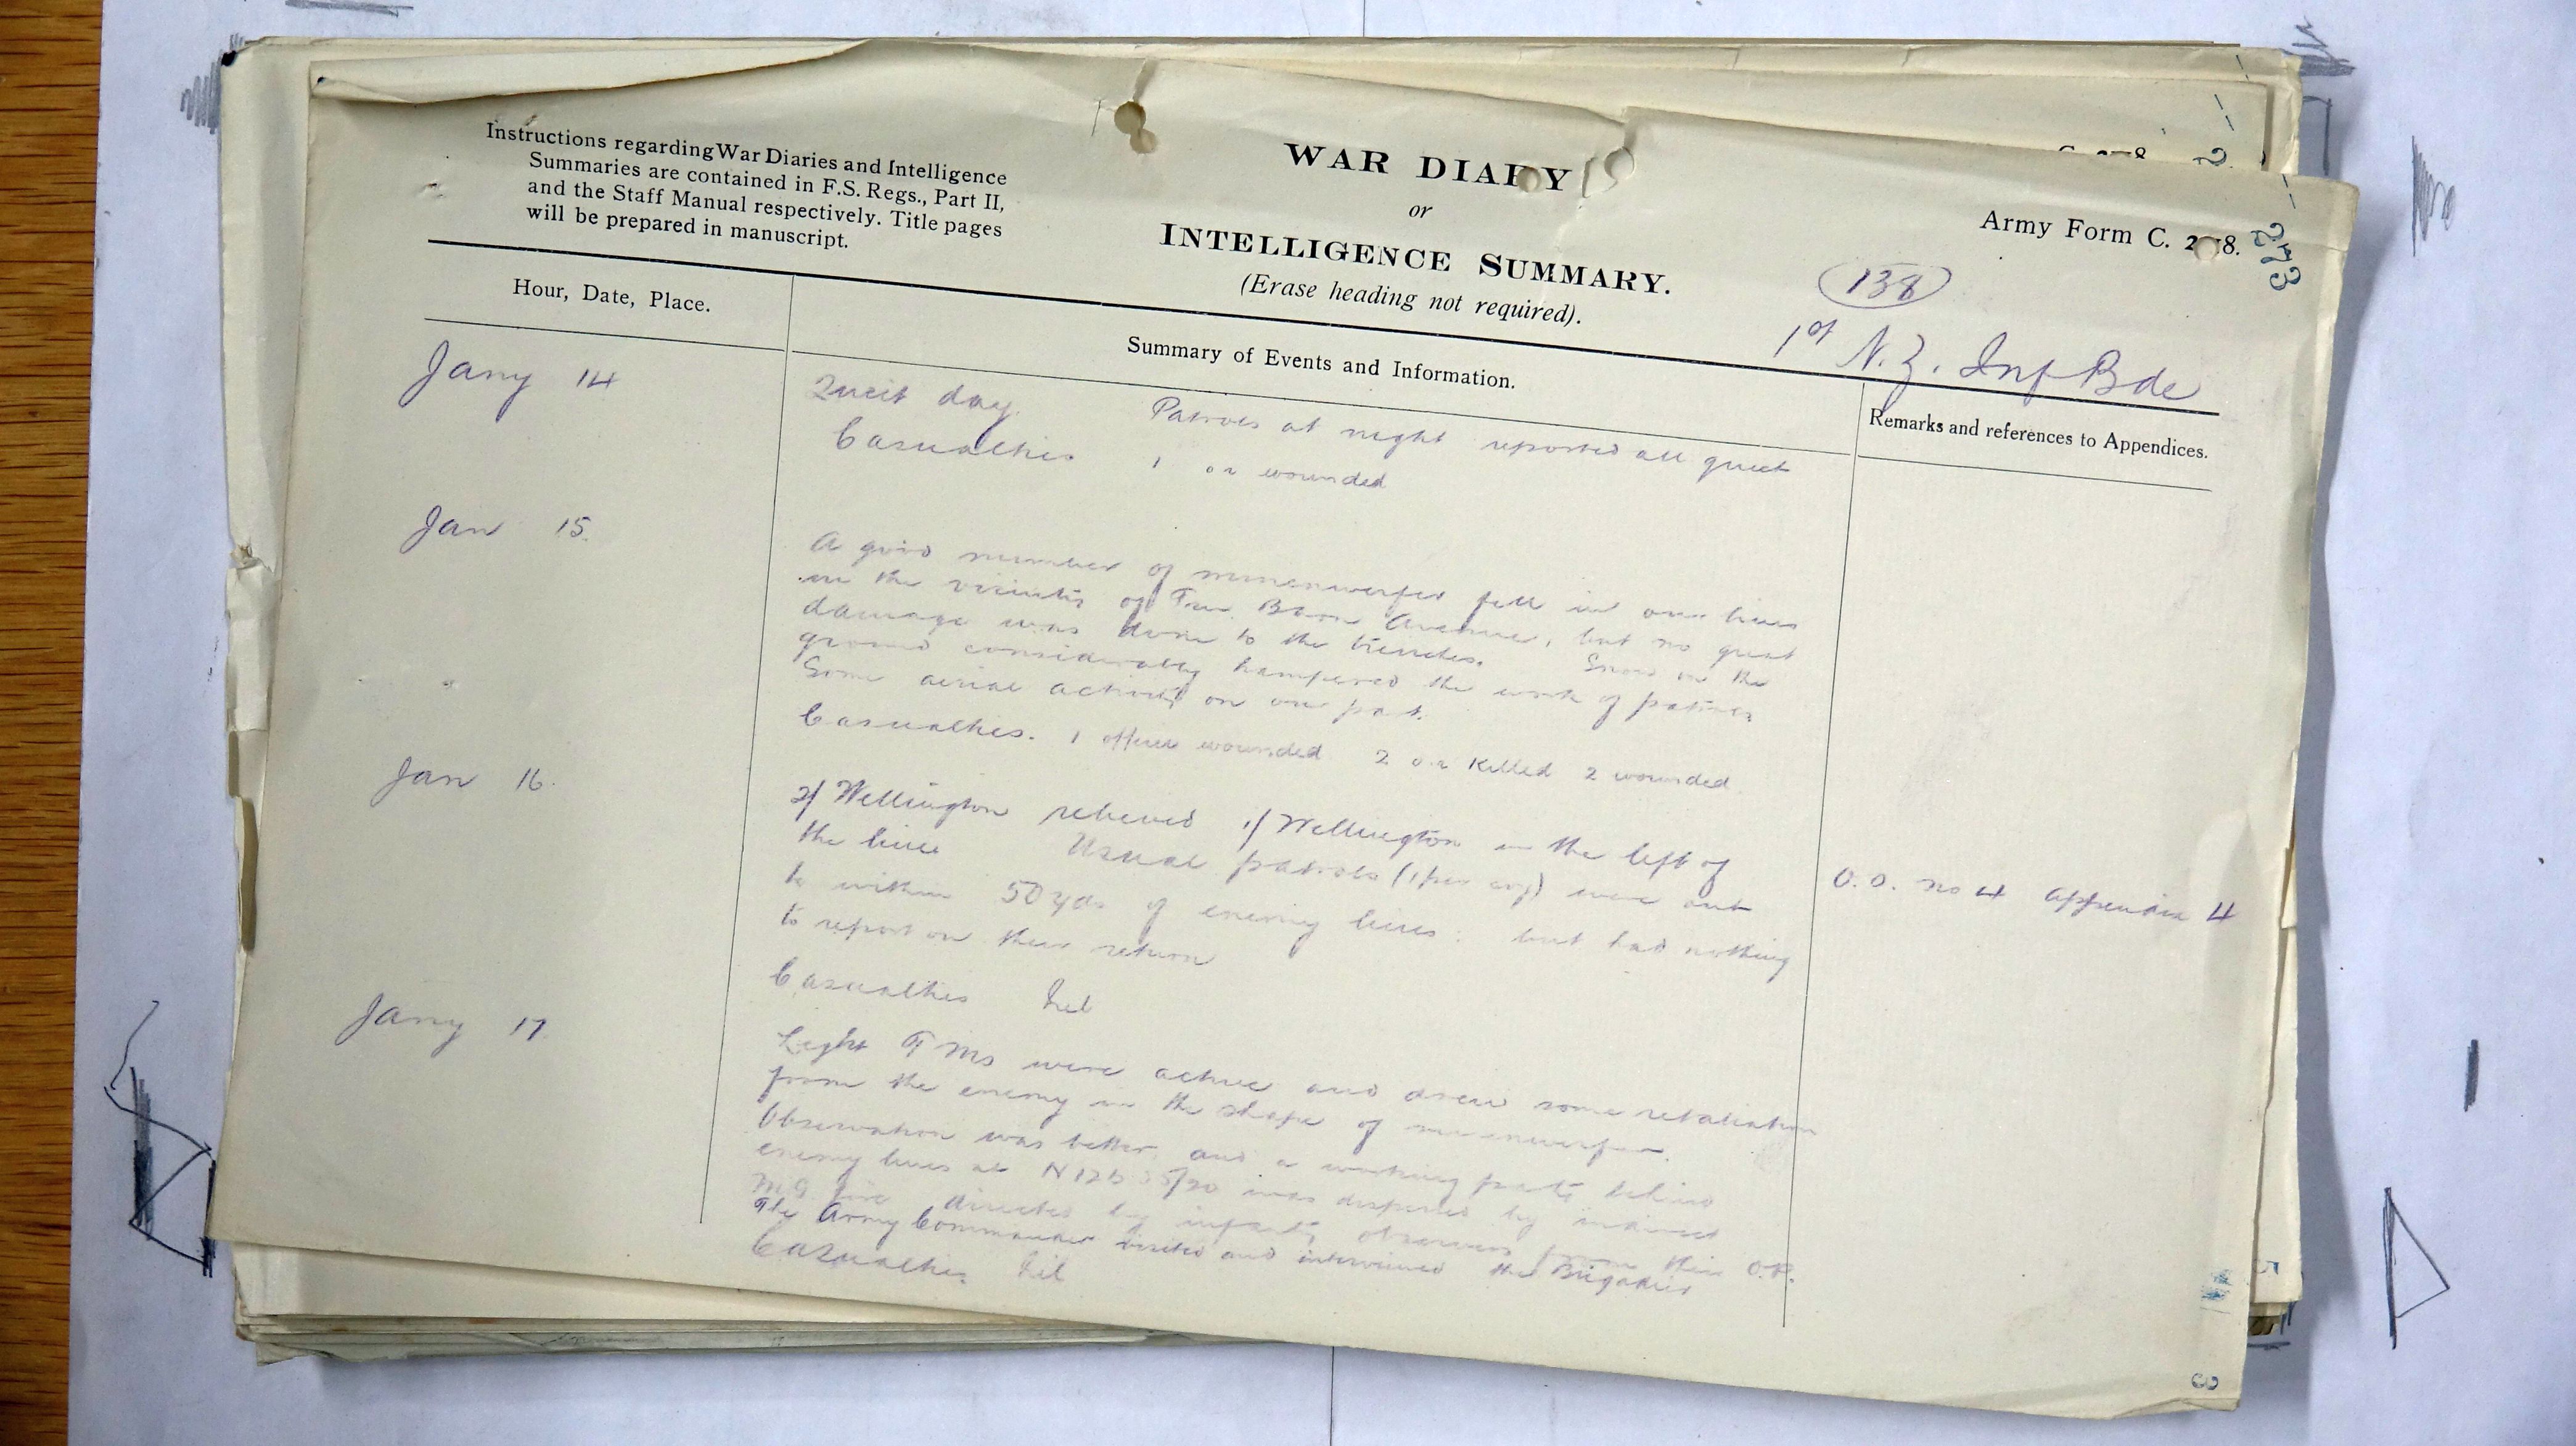 Instructions regarding War Diaries and Intelligence
Summaries are contained in F.S. Regs., Part II,
and the Staff Manual respectively. Title pages
will be prepared in manuscript.
WAR DIARY
or
INTELLIGENCE SUMMARY.
(Erase heading not required).
Army Form C. 2 8.
273
138
1st N.Z. Inf Bde
Hour, Date, Place.
Summary of Events and Information.
Remarks and references to Appendices.
Jany 14
Quiet day. Patrols at night reported all quiet
Casualties 1 or wounded
Jan 15.
A good number of minenwerfer fell in our lines
in the vicinity of Barn Avenue, but no great
damage was done to the trenches. Snow on the
ground considerably hampered the work of patrols
Some aerial activity on our part.
Casualties. 1 officer wounded 2 o.r killed 2 wounded.
Jan 16.
2/ Wellington relieved 1/ Wellington in the left of
the line Usual patrols (1 per coy) were out
to within 50 yds of enemy lines: but had nothing
to report on their return
O.O. no 4 appendix 4
Casualties Nil
Jany 17
Light T Ms were active and drew some retaliation
from the enemy in the shape of minenwerfer.
Observation was better, and a working party behind
enemy lines at N12b 35/20 was dispersed by indirect
M.G. fire directed by infantry observers from their O.P.
The Army Commander visited and interviewed the Brigadier
Casualties Nil
3